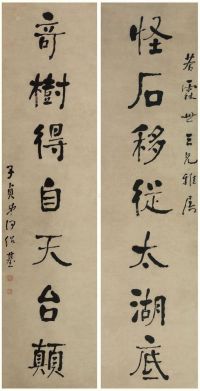 怪石移從太湖底
奇樹得自天台顛
若霞世三兄雅屬
子貞弟何紹基